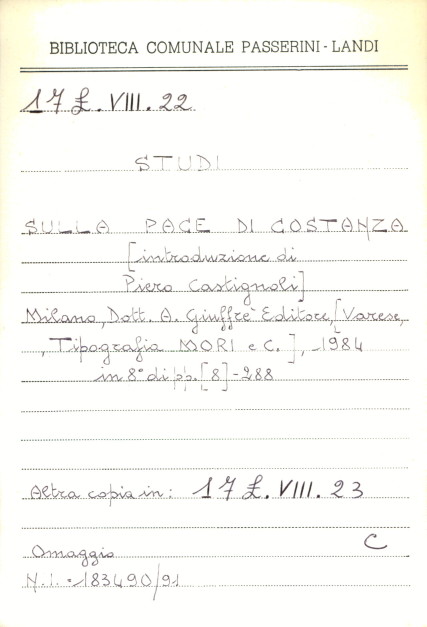 BIBLIOTECA COMUNALE PASSERINI - LANDI
17 L. VIII. 22
STUDI
SULLA PACE DI COSTANZA
[introduzione di
Piero Castignoli]
Milano, Dott. A. Giuffrè Editore, [Varese,
, Tipografia MORI e C. ], 1984
in 8° di pp. [8]-288
Altra copia in: 17 L. VIII. 23
C
Omaggio
N.i. =183490/91